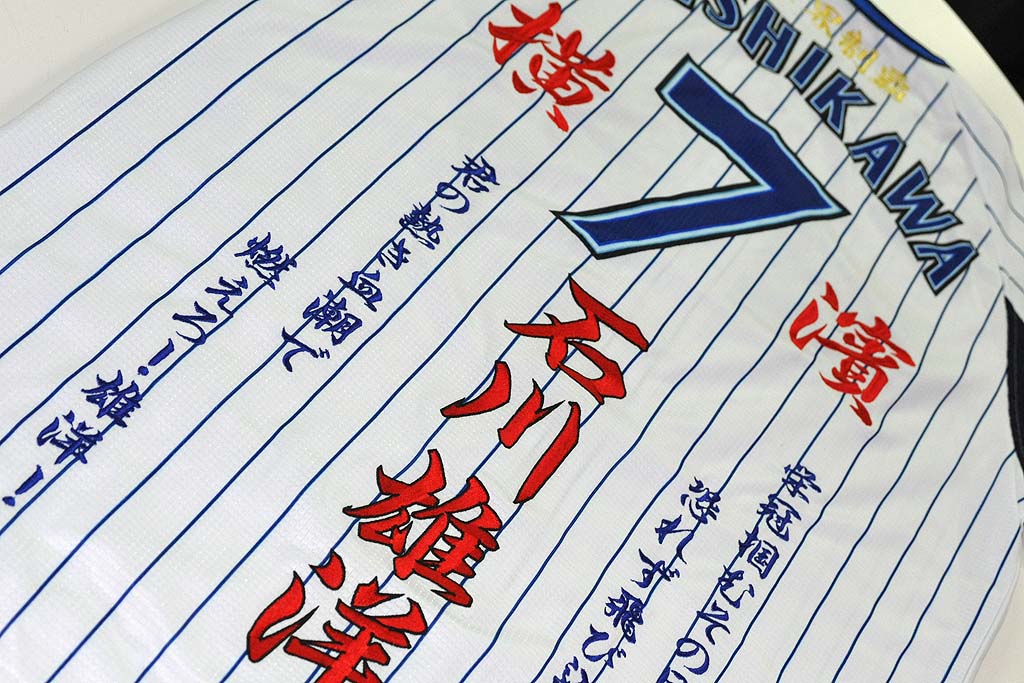 SHIKAWA
7
横
濱
石川雄洋
栄冠掴むその
恐れず飛び
君の熱き血潮で
燃えろ!雄洋!